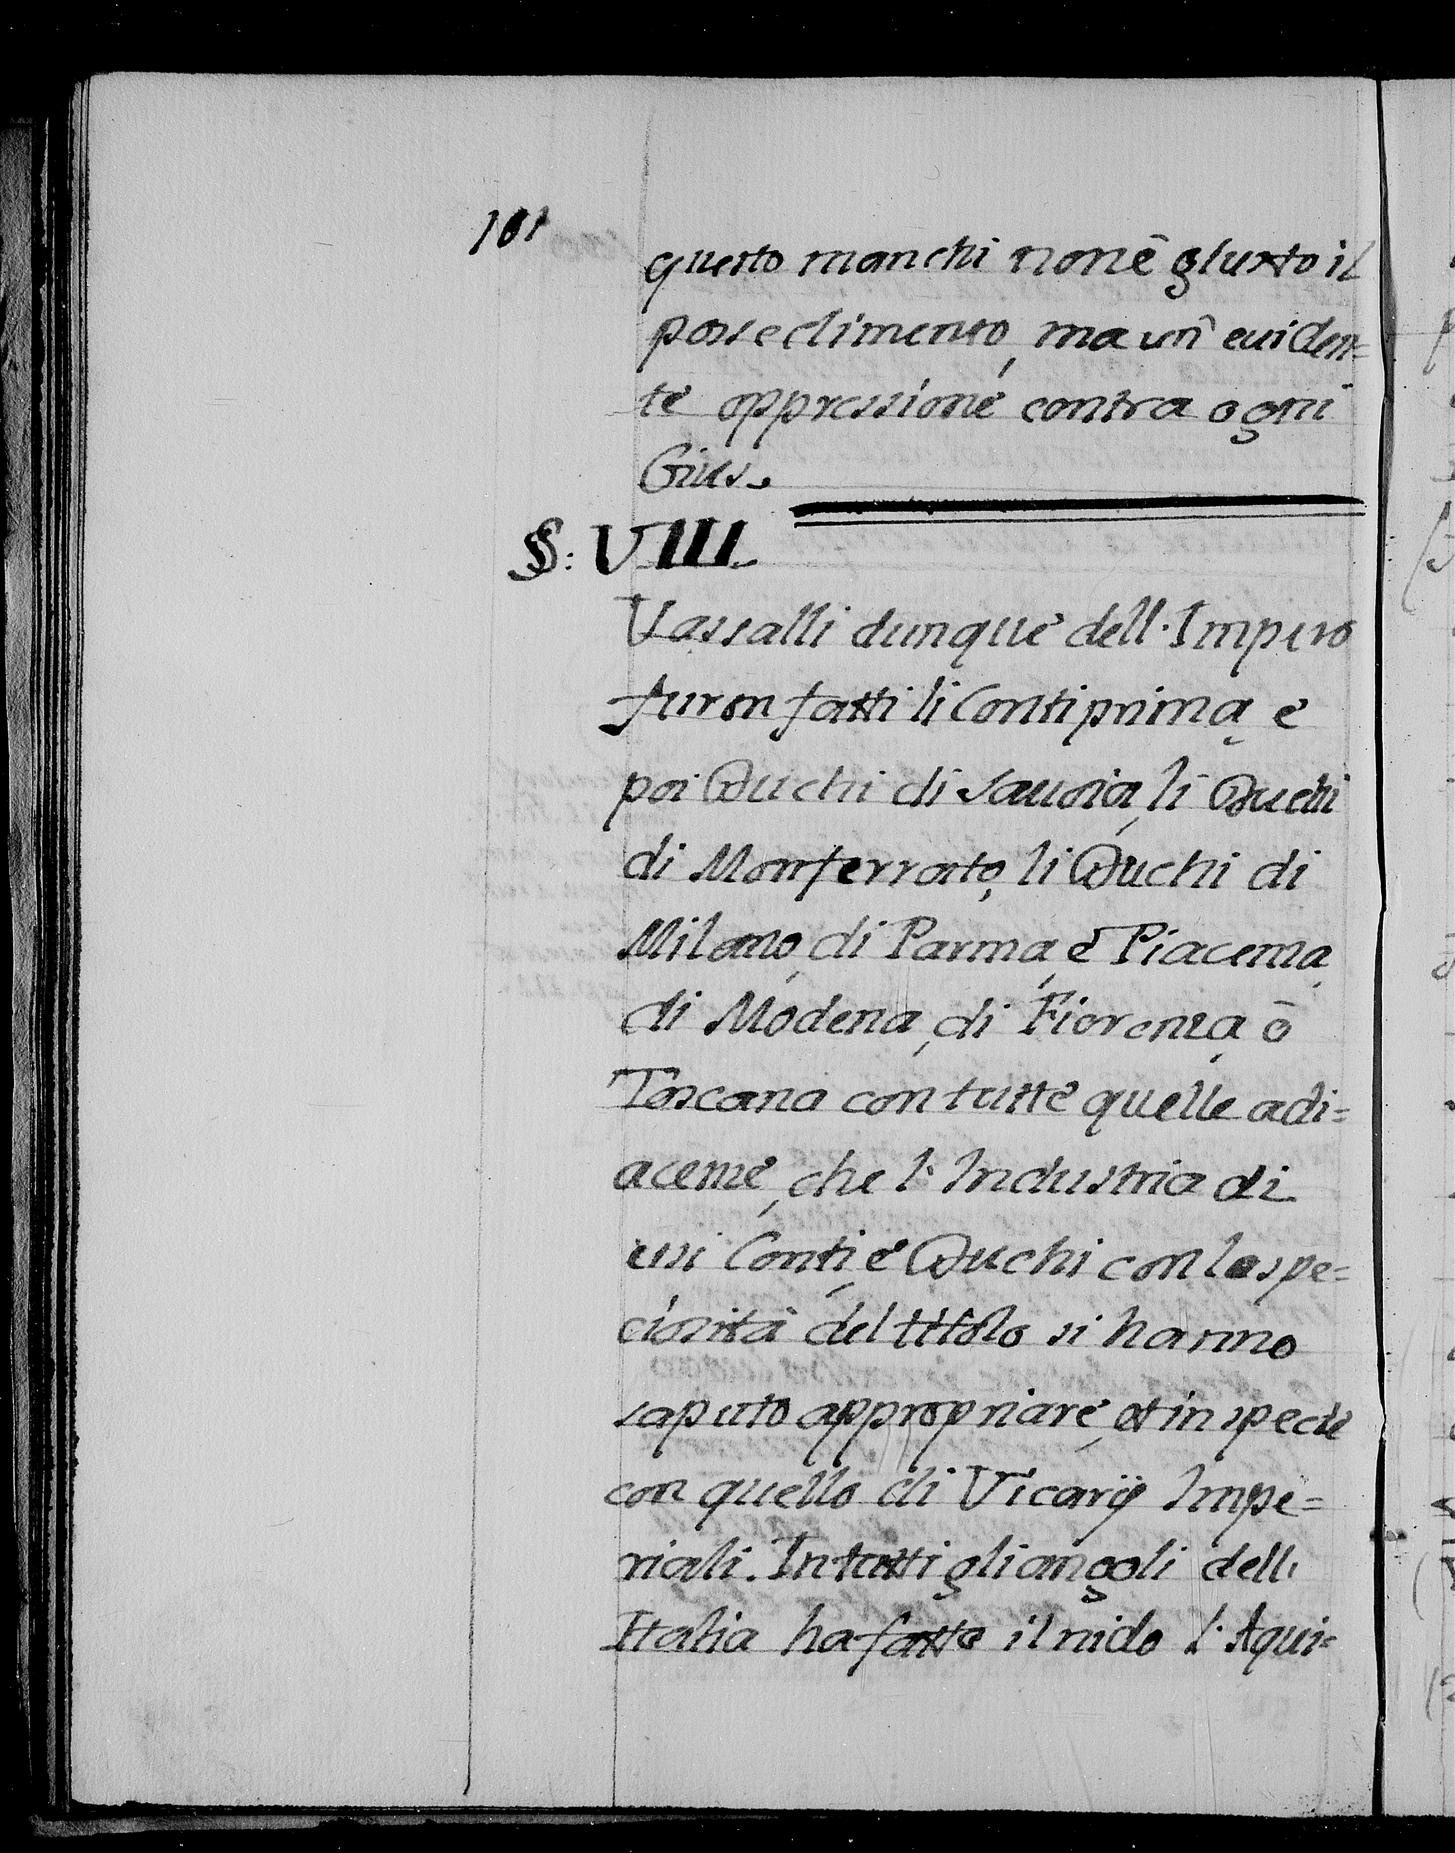 101
questo manchi non è giusto il
possedimento, ma un' euiden=
te oppressione contra ogni
Gius.
§: VIII.
Vassalli dunque dell' Impero
furon fatti li Conti prima, e
poi Duchi di Sauoia, li Duchi
di Monferrato, li Duchi di
Milano, di Parma, e Piacenza,
di Modena, di Fiorenza, ò
Toscana con tutte quelle adi=
acenze, che l' Industria di
essi Conti, e Duchi con la spe=
ciosità del titolo si hanno
saputo appropriare, et in specie
con quello di Vicarÿ Impe=
riali. In tutti gli angoli dell'
Italia ha fatto il nido l' Aqui=